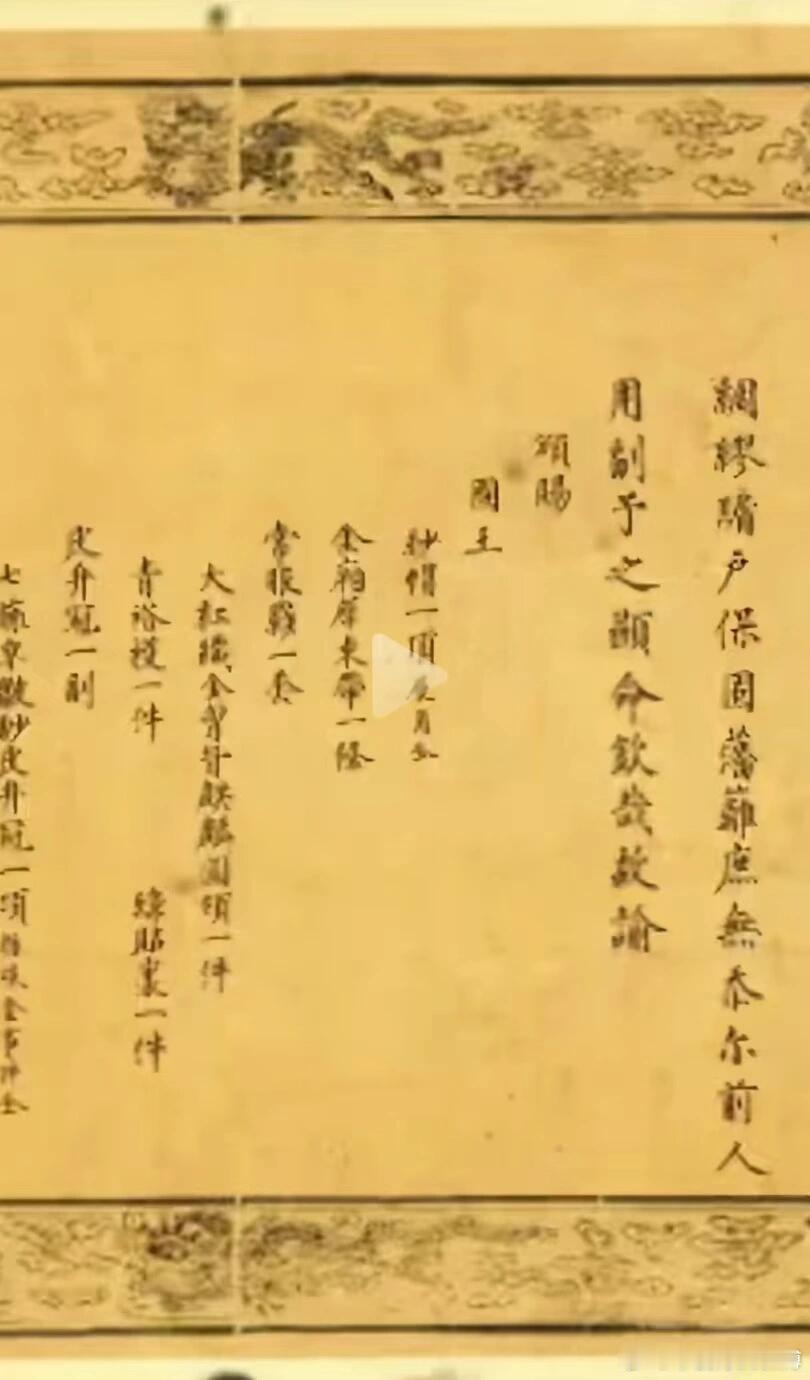 綢繆牖户保固藩籬庶無忝尔前人
用副予之顯命欽哉故諭
頒賜
國王
紗帽一頂展角全
金廂犀束帶一條
常服羅一套
大紅織金胷背麒麟圓領一件
青褡𧞤一件 綠貼裏一件
皮弁冠一副
七旒皁皺紗皮弁冠一頂旒珠金事件全